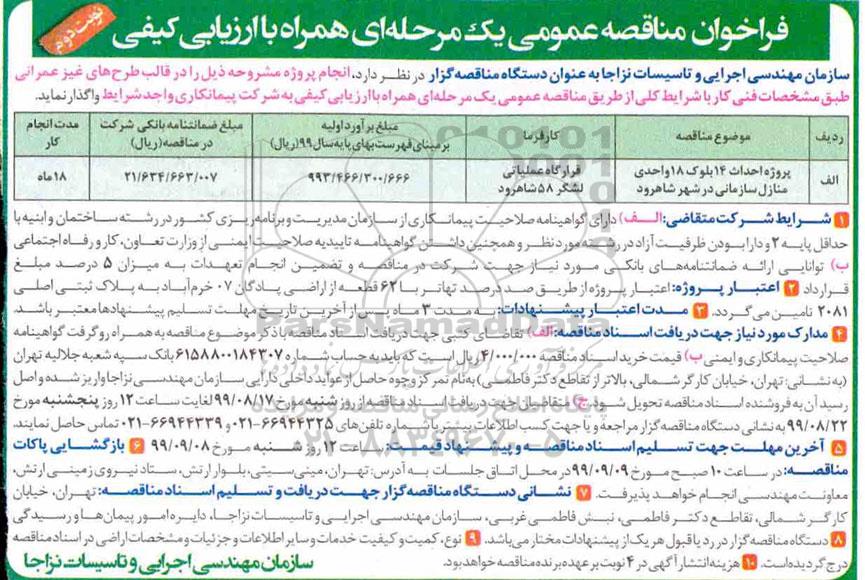 فراخوان مناقصه عمومی یک مرحله‌ای همراه با ارزیابی کیفی
نوبت دوم
سازمان مهندسی اجرایی و تاسیسات نزاجا به عنوان دستگاه مناقصه‌گزار در نظر دارد، انجام پروژه مشروحه ذیل را در قالب طرح‌های غیر عمرانی
طبق مشخصات فنی کار با شرایط کلی از طریق مناقصه عمومی یک مرحله‌ای همراه با ارزیابی کیفی به شرکت پیمانکاری واجد شرایط واگذار نماید.
ردیف
موضوع مناقصه
کارفرما
مبلغ برآورد اولیه بر مبنای فهرست بهای پایه سال ۹۹ (ریال)
مبلغ ضمانتنامه بانکی شرکت در مناقصه (ریال)
مدت انجام کار
الف
پروژه احداث ۱۴ بلوک ۱۸ واحدی منازل سازمانی در شهر شاهرود
قرارگاه عملیاتی لشگر ۵۸ شاهرود
۹۹۳/۴۶۶/۳۰۰/۶۶۶
۲۱/۶۳۴/۶۶۳/۰۰۷
۱۸ ماه
۱ شرایط شرکت متقاضی: الف) دارای گواهینامه صلاحیت پیمانکاری از سازمان مدیریت و برنامه‌ریزی کشور در رشته ساختمان و ابنیه با
حداقل پایه ۲ و دارا بودن ظرفیت آزاد در رشته مورد نظر و همچنین داشتن گواهینامه تاییدیه صلاحیت ایمنی از وزارت تعاون، کار و رفاه اجتماعی
ب) توانایی ارائه ضمانتنامه‌های بانکی مورد نیاز جهت شرکت در مناقصه و تضمین انجام تعهدات به میزان ۵ درصد مبلغ
قرارداد ۲ اعتبار پروژه: اعتبار پروژه از طریق صد درصد تهاتر با ۶۲ قطعه از اراضی پادگان ۰۷ خرم‌آباد به پلاک ثبتی اصلی
۲۰۸۱ تامین می‌گردد. ۳ مدت اعتبار پیشنهادات: به مدت ۳ ماه پس از آخرین تاریخ مهلت تسلیم پیشنهادها معتبر باشد.
۴ مدارک مورد نیاز جهت دریافت اسناد مناقصه: الف) تقاضای کتبی جهت دریافت اسناد مناقصه با ذکر موضوع مناقصه به همراه رو گرفت گواهینامه
صلاحیت پیمانکاری و ایمنی ب) قیمت خرید اسناد مناقصه ۴/۰۰۰/۰۰۰ ریال است که باید به حساب شماره ۶۱۵۸۸۰۰۱۸۴۳۰۷ بانک سپه شعبه جلالیه تهران
(به نشانی: تهران، خیابان کارگر شمالی، بالاتر از تقاطع دکتر فاطمی) به نام تمرکز وجوه حاصل از عواید داخلی دارایی سازمان مهندسی نزاجا واریز شده و اصل
رسید آن به فروشنده اسناد مناقصه تحویل شود ج) متقاضیان جهت دریافت اسناد مناقصه از روز شنبه مورخ ۹۹/۰۸/۱۷ لغایت ساعت ۱۲ روز پنجشنبه مورخ
۹۹/۰۸/۲۲ به نشانی دستگاه مناقصه گزار مراجعه و یا جهت کسب اطلاعات بیشتر با شماره تلفن‌های ۶۶۹۴۴۳۲۵-۰۲۱ و ۶۶۹۴۴۳۳۹-۰۲۱ تماس حاصل نمایند.
۵ آخرین مهلت جهت تسلیم اسناد مناقصه و پیشنهاد قیمت: ساعت ۱۲ روز شنبه مورخ ۹۹/۰۹/۰۸ ۶ بازگشایی پاکات
مناقصه: در ساعت ۱۰ صبح مورخ ۹۹/۰۹/۰۹ در محل اتاق جلسات به آدرس: تهران، مینی‌سیتی، بلوار ارتش، ستاد نیروی زمینی ارتش،
معاونت مهندسی انجام خواهد پذیرفت. ۷ نشانی دستگاه مناقصه گزار جهت دریافت و تسلیم اسناد مناقصه: تهران، خیابان
کارگر شمالی، تقاطع دکتر فاطمی، نبش فاطمی غربی، سازمان مهندسی اجرایی و تاسیسات نزاجا، دایره امور پیمان‌ها و رسیدگی
۸ دستگاه مناقصه گزار در رد یا قبول هر یک از پیشنهادات مختار می‌باشد. ۹ نوع، کمیت و کیفیت خدمات و سایر اطلاعات و جزئیات و مشخصات اراضی در اسناد مناقصه
درج گردیده است. ۱۰ هزینه انتشار آگهی در ۴ نوبت بر عهده برنده مناقصه خواهد بود.
سازمان مهندسی اجرایی و تاسیسات نزاجا